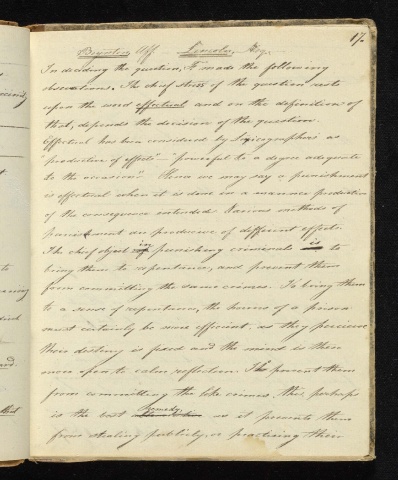 17.
Aff Lincoln, Neg.
In deciding the question, I made the following
observations. The chief stress of the question rests
upon the word effectual and on the definition of
that, depends the decision of the question
Effectual has been considered by Lexicographers as
"productive of effects" — powerful to a degree adequate
to the occasion". Hence we may say a punishment
is effectual when it is done in a manner productive
of the consequence intended. Various methods of
punishment are productive of different effects.
The chief object in punishing criminals is to
bring them to repentance, and prevent them
from committing the same crimes. To bring them
to a sense of repentance, the horrors of a prison
must certainly be more efficient, as they perceive
their destiny is fixed and the mind is then
more open to calm reflection. To prevent them
from committing the like crimes, this, perhaps
is the best Remedy as it prevents them
from stealing publicly, or practising their